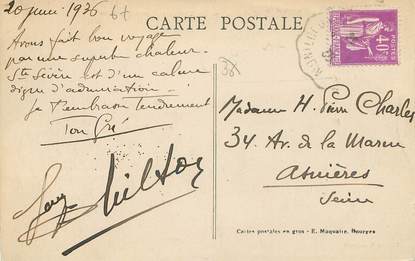 20 juin 1936
Avons fait bon voyage
par une superbe chaleur.
St Sévin est d'un calme
digne d'admiration
Je t'embrasse tendrement
Ton
CARTE POSTALE
40c
POSTES
36
Madame H. Pierre Charles
34 Av. de la Marne
Asnières
Seine
Cartes postales en gros - E. Maquaire, Bourges